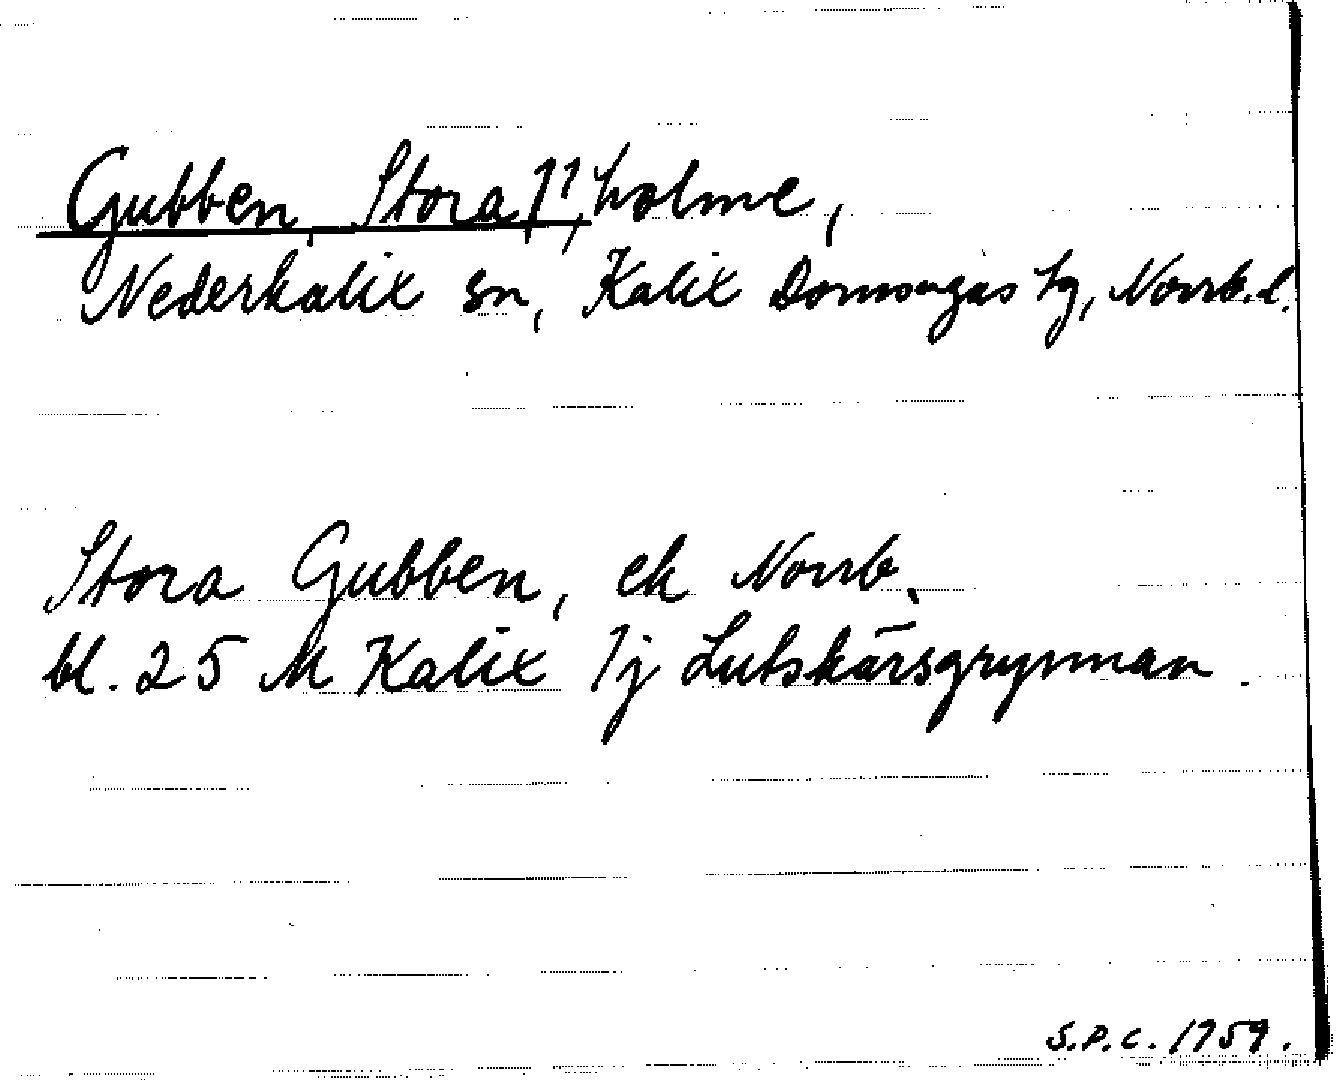 Gubben, Stora, holme,
Nederkalix sn, Kalix Domsagas tg, Norrb.l.
Stora Gubben, ek Norrb.
bl. 25 M Kalix 1j Lutskärsgrynnan.
S.P.C. 1959.